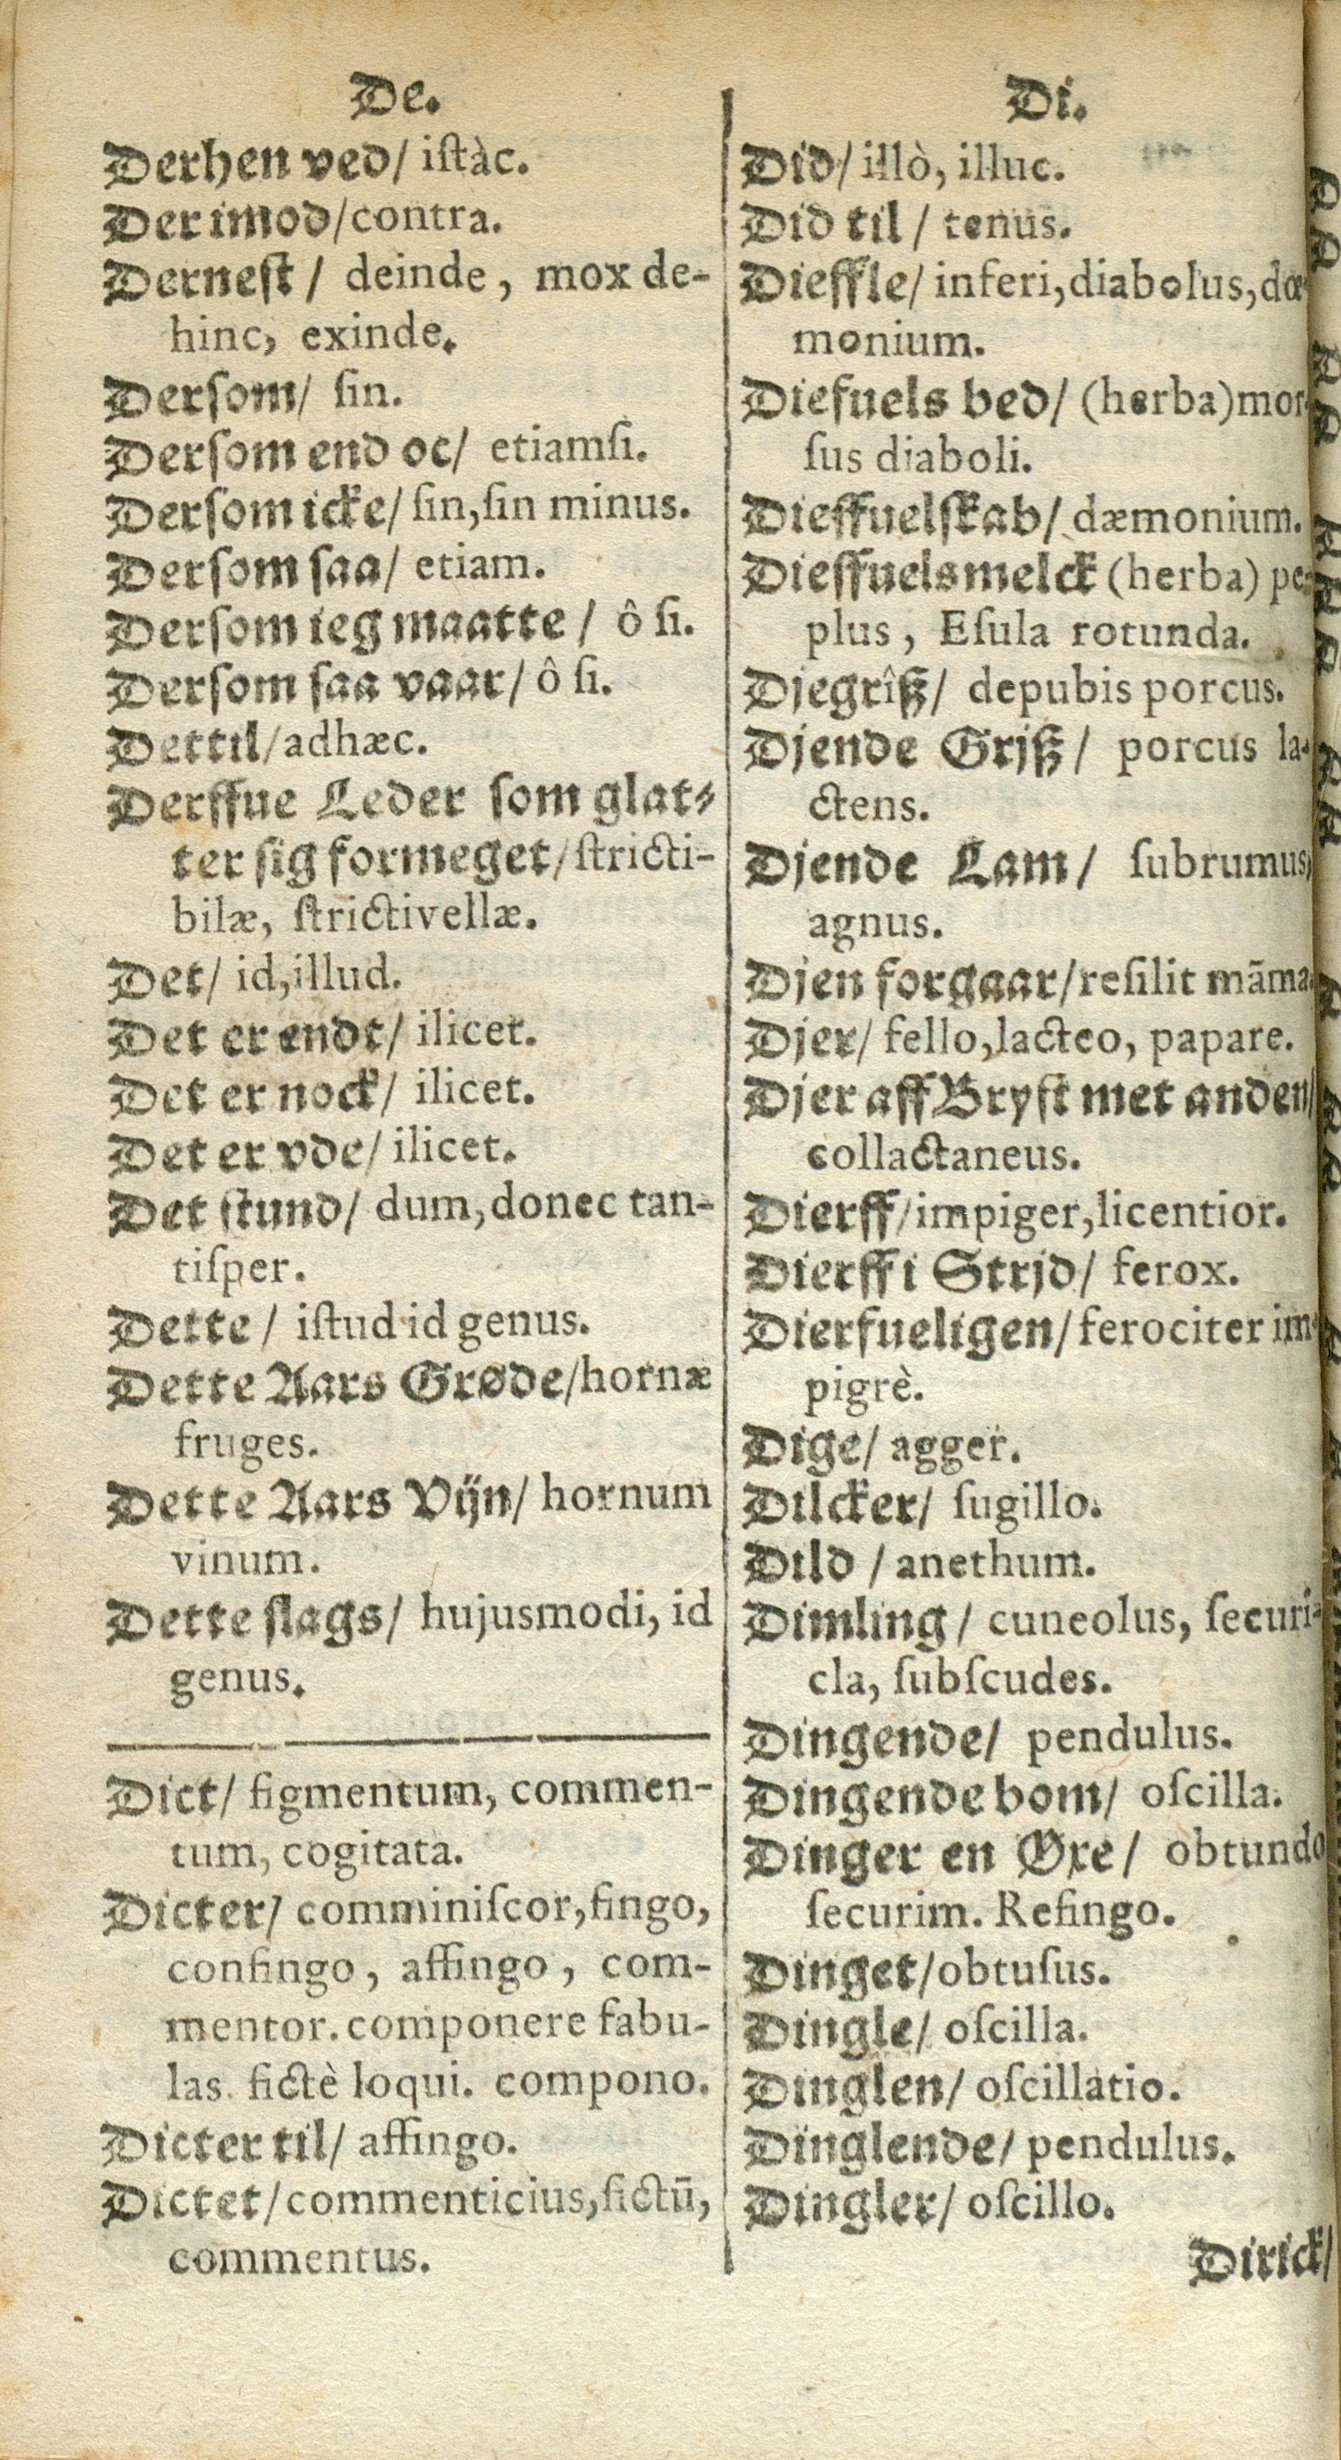 De.
Derhen ved/ iſtàc.
Der imod/contra.
Derneſt / deinde, mox de-
hinc, exinde.
Derſom/ ſin.
Derſom end oc/ etiamſi.
Derſom icke/ ſin,ſin minus.
Derſom ſaa/ etiam.
Derſom ieg maatte / ô ſi.
Derſom ſaa vaar/ ô ſi.
Dertil/adhæc.
Derffue Leder ſom glat-
ter ſig formeget/ſtricti-
bilæ, ſtrictivellæ.
Det/ id,illud.
Det er endt/ ilicet.
Det er nock/ ilicet.
Det er vde/ ilicet.
Det ſtund/ dum,donec tan-
tiſper.
Dette / iſtud id genus.
Dette Aars Grøde/hornæ
fruges.
Dette Aars Vijn/ hornum
vinum.
Dette ſlags/ hujusmodi, id
genus.
Dict/ figmentum, commen-
tum, cogitata.
Dicter/ comminiſcor,fingo,
confingo, affingo, com-
mentor.componere fabu-
las. fictè loqui. compono.
Dicter til/ affingo.
Dictet/commenticius,fictū,
commentus.
Di.
Did/ illò, illuc.
Did til / tenus.
Dieffle/ inferi,diabolus,dœ-
monium.
Diefuels bed/ (herba)mor-
ſus diaboli.
Dieffuelſkab/ dæmonium.
Dieffuelsmelck (herba) pe-
plus, Eſula rotunda.
Djegrîß/ depubis porcus.
Djende Grjß/ porcus la-
ctens.
Djende Lam/ ſubrumus,
agnus.
Djen forgaar/reſilit mãma.
Djer/ fello,lacteo, papare.
Djer aff Bryſt met anden/
collactaneus.
Dierff/impiger,licentior.
Dierff i Strjd/ ferox.
Dierfueligen/ferociter im-
pigrè.
Dige/ agger.
Dilcker/ ſugillo.
Dild / anethum.
Dimling/ cuneolus, ſecuri-
cla, ſubſcudes.
Dingende/ pendulus.
Dingende bom/ oſcilla.
Dinger en Øxe/ obtundo
ſecurim. Refingo.
Dinget/obtuſus.
Dingle/ oſcilla.
Dinglen/ oſcillatio.
Dinglende/ pendulus.
Dingler/ oſcillo.
Dirick/